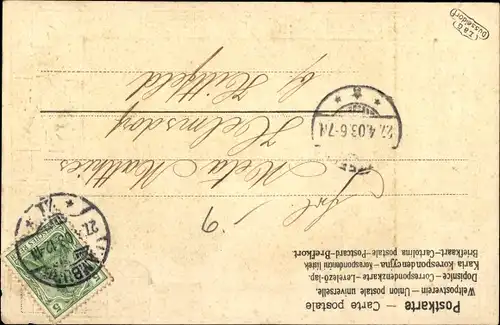 Postkarte — Carte postale
Weltpostverein — Union postale universelle.
Dopisnice — Correspondenzkarte — Levelező-lap.
Karta korespondencyjna — Korespondenční lístek
Briefkaart — Cartolina postale — Postcard — Brefkort.
Frl.
Meta Matthies
Helmsdorf
by Hittfeld
27.4.03.6-7N
HAMBURG
27.
5
Düsseldorf